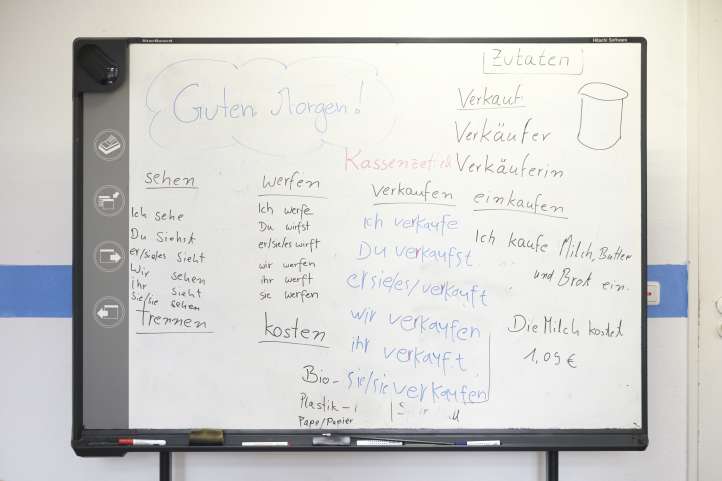 StarBoard
Hitachi Software
Zutaten
Guten Morgen!
Verkauf
Verkäufer
Verkäuferin
sehen
Ich sehe
Du Siehst
er/sie/es Sieht
Wir sehen
ihr Sieht
Sie/sie sehen
trennen
werfen
Ich werfe
Du wirfst
er/sie/es wirft
wir werfen
ihr werft
sie werfen
kosten
verkaufen
Ich verkaufe
Du verkaufst
er sie/es/verkauft
wir verkaufen
ihr verkauft
sie/sie verkaufen
einkaufen
Ich kaufe Milch, Butter
und Brot ein.
Die Milch kostet
1,09 €
Bio-
Plastik-
Pape/Papier